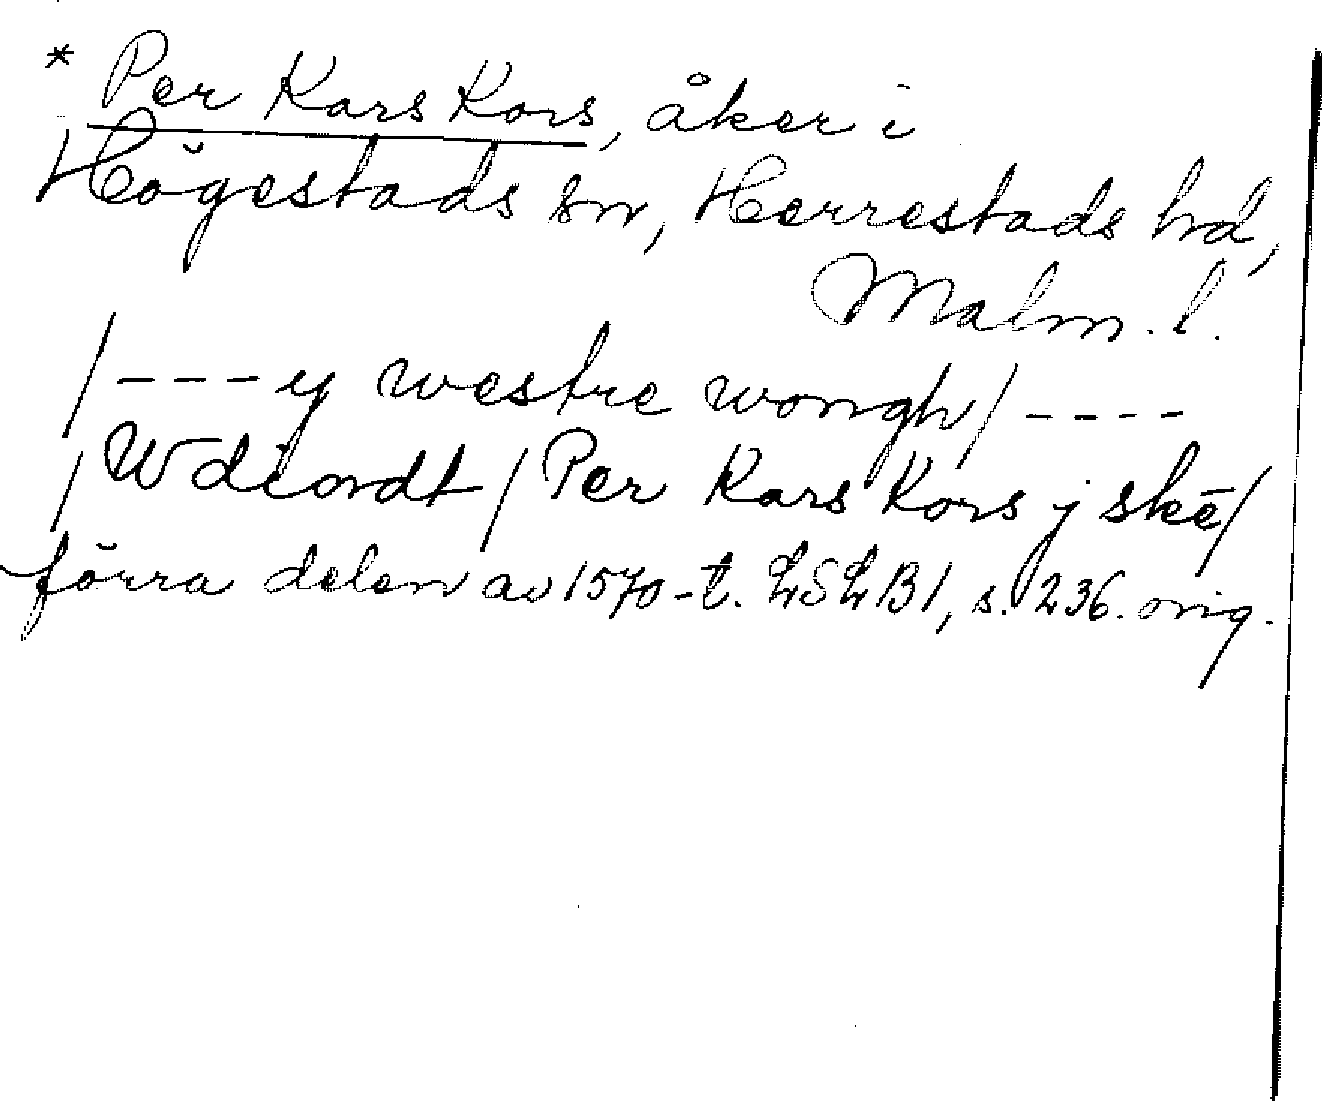 * Per Kars Kors, åker i
Högestads sn, Herrestads hd,
Malm. l.
/---y westre wongh/----
/Wdiordt/Per Kars Kors j skē/
förra delen av 1570-t. LSLB1, s. 236. orig.